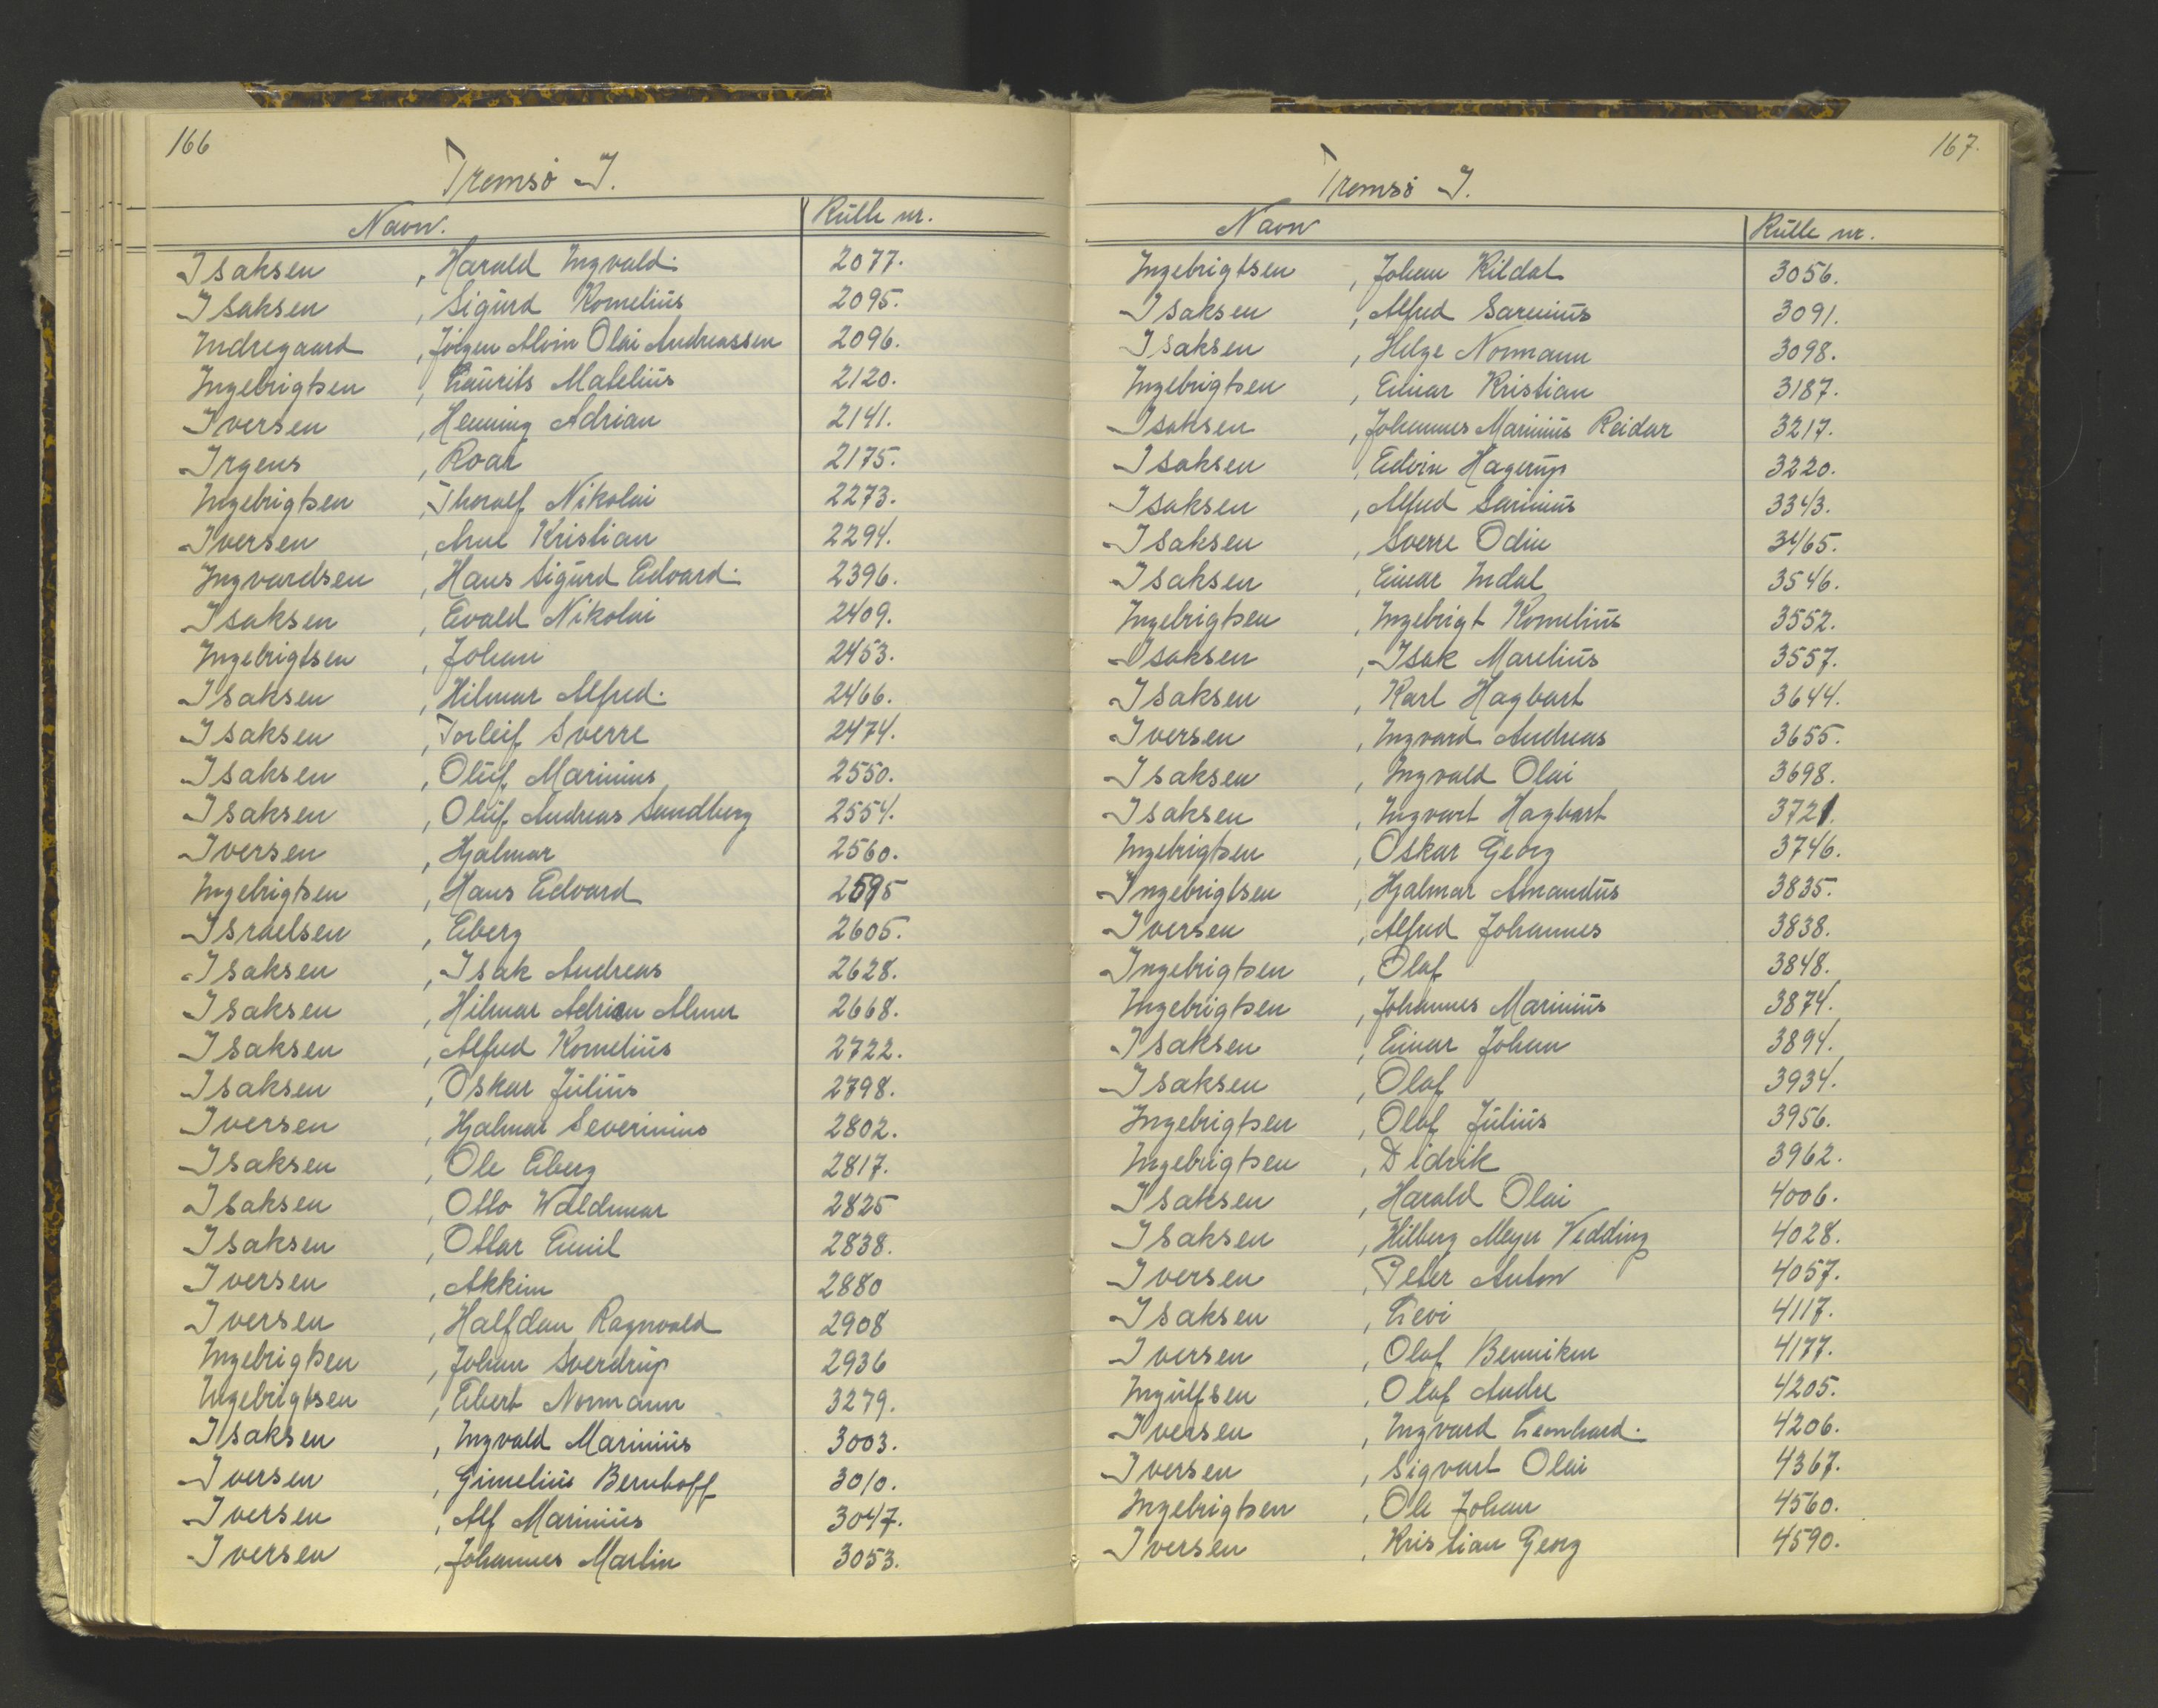 166
Tromsø I.
Navn. Rulle nr.
Isaksen , Harald Ingvald. 2077.
Isaksen , Sigurd Kornelius 2095.
Indregaard , Jörgen Alvin Olai Andreassen 2096.
Ingebrigtsen , Laurits Matelius 2120.
Iversen , Henning Adrian 2141.
Irgens , Roar 2175.
Ingebrigtsen , Thoralf Nikolai 2273.
Iversen , Arne Kristian 2294.
Ingvardsen , Hans Sigurd Edvard. 2396.
Isaksen , Evald Nikolai 2409.
Ingebrigtsen , Johan 2453.
Isaksen , Hilmar Alfred. 2466.
Isaksen , Torleif Sverre 2474.
Isaksen , Oluf Marinius 2550.
Isaksen , Oluf Andreas Sandberg 2554.
Iversen , Hjalmar 2560.
Ingebrigtsen , Hans Edvard 2595
Israelsen , Eberg 2605.
Isaksen , Isak Andreas 2628.
Isaksen , Hilmar Adrian Almer 2668.
Isaksen , Alfred Kornelius 2722.
Isaksen , Oskar Julius 2798.
Iversen , Hjalmar Severinius 2802.
Isaksen , Ole Eberg 2817.
Isaksen , Otto Waldemar 2825
Isaksen , Ottar Emil 2838.
Iversen , Akkim 2880
Iversen , Halfdan Ragnvald 2908
Ingebrigtsen , Johan Sverdrup 2936
Ingebrigtsen , Edvert Normann 3279.
Isaksen , Ingvald Marinius 3003.
Iversen , Gunelius Bernhoff 3010.
Iversen , Alf Marinius 3047.
Iversen , Johannes Martin 3053.
167.
Tromsø I.
Navn Rulle nr.
Ingebrigtsen , Johan Kildal 3056.
Isaksen , Alfred Sarenius 3091.
Isaksen , Helge Normann 3098.
Ingebrigtsen , Einar Kristian 3187.
Isaksen , Johannes Marinius Reidar 3217.
Isaksen , Edvin Hagerup 3220.
Isaksen , Alfred Sarinius 3343.
Isaksen , Sverre Odin 3465.
Isaksen , Einar Indal 3546.
Ingebrigtsen , Ingebrigt Kornelius 3552.
Isaksen , Isak Marelius 3557.
Isaksen , Karl Hagbart 3644.
Iversen , Ingvard Andreas 3655.
Isaksen , Ingvald Olai 3698.
Isaksen , Ingvart Hagbart 3721.
Ingebrigtsen , Oskar Georg 3746.
Ingebrigtsen , Hjalmar Amandus 3835.
Iversen , Alfred Johannes 3838.
Ingebrigtsen , Olaf 3848.
Ingebrigtsen , Johannes Marinius 3874.
Isaksen , Einar Johan 3894.
Isaksen , Olaf 3934.
Ingebrigtsen , Olaf Julius 3956.
Ingebrigtsen , Didrik 3962.
Isaksen , Harald Olai 4006.
Isaksen , Hilberg Meyer Vedding 4028.
Iversen , Peter Anton 4057.
Isaksen , Levi 4117.
Iversen , Olaf Benniken 4177.
Ingulfsen , Olaf Andre 4205.
Iversen , Ingvard Leonhard. 4206.
Iversen , Sigvart Olai 4367.
Ingebrigtsen , Ole Johan 4560.
Iversen , Kristian Georg 4590.